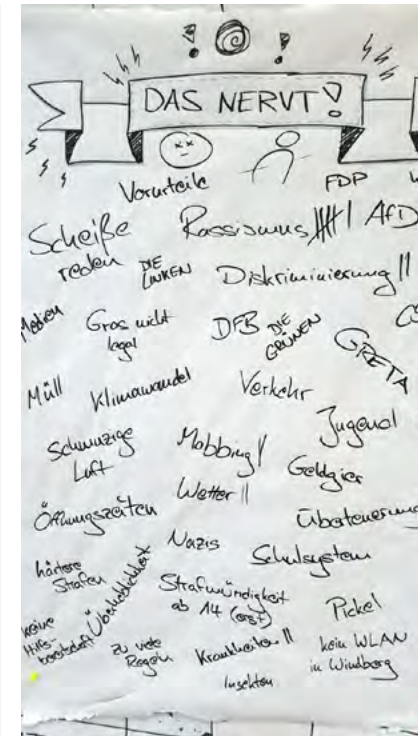 DAS NERVT!
Vorurteile FDP
Scheiße reden
Rassismus |||| | AfD
DIE LINKEN
Diskriminierung ||
Medien
Gras nicht legal
DFB
DIE GRÜNEN
GRETA
Müll
Klimawandel
Verkehr
Schmutzige Luft
Mobbing |
Jugend
Geldgier
Öffnungszeiten
Wetter ||
Überteuerung
Nazis
Schulsystem
härtere Strafen
Strafmündigkeit ab 14 (erst)
Pickel
keine Hilfs-bereitschaft
zu viele Regeln
Krankheiten ||
kein WLAN in Windberg
Insekten